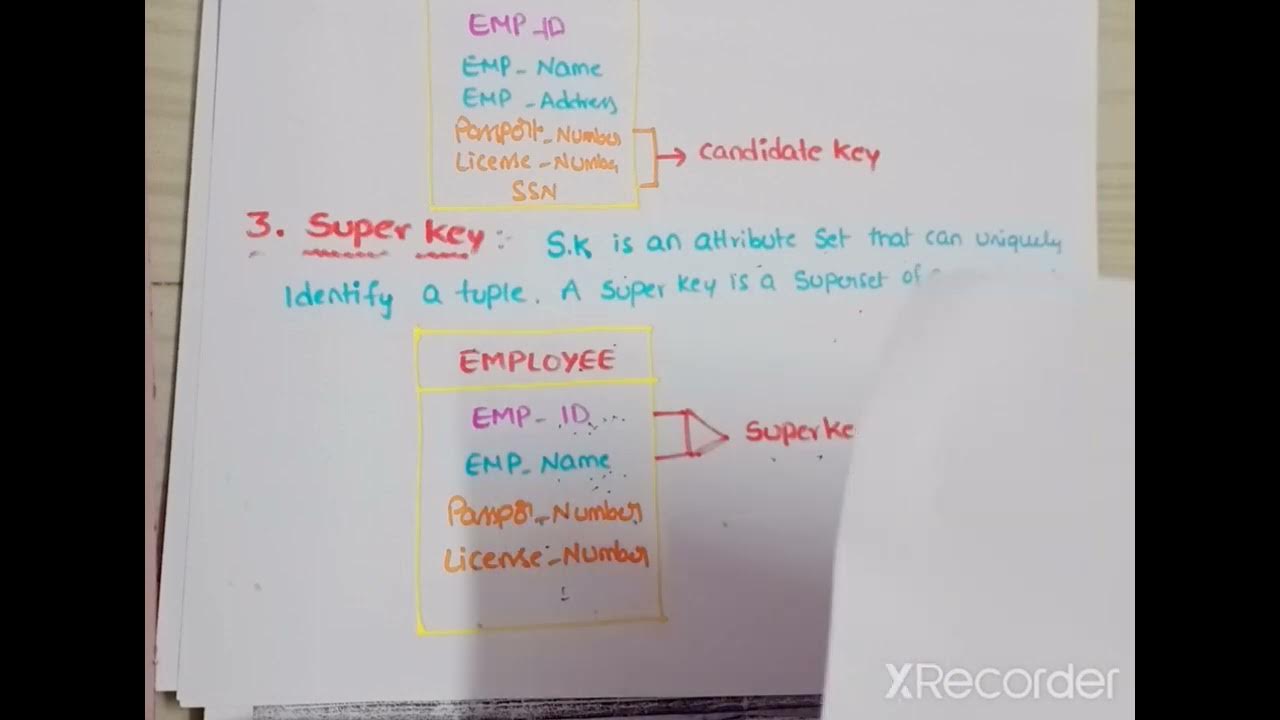 EMP_ID
EMP_Name
EMP_Address
Passport_Number
License_Number
SSN
candidate key
3. Super key :- S.K is an attribute set that can uniquely
Identify a tuple. A super key is a superset of
EMPLOYEE
EMP_ID
EMP_Name
Super Ke
Passpor_Number
License_Number
XRecorder